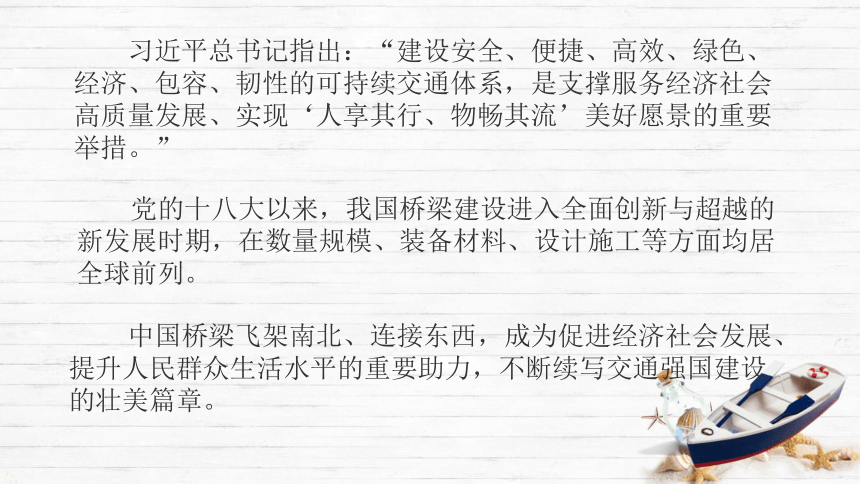 习近平总书记指出：“建设安全、便捷、高效、绿色、
经济、包容、韧性的可持续交通体系，是支撑服务经济社会
高质量发展、实现‘人享其行、物畅其流’美好愿景的重要
举措。”
党的十八大以来，我国桥梁建设进入全面创新与超越的
新发展时期，在数量规模、装备材料、设计施工等方面均居
全球前列。
中国桥梁飞架南北、连接东西，成为促进经济社会发展、
提升人民群众生活水平的重要助力，不断续写交通强国建设
的壮美篇章。